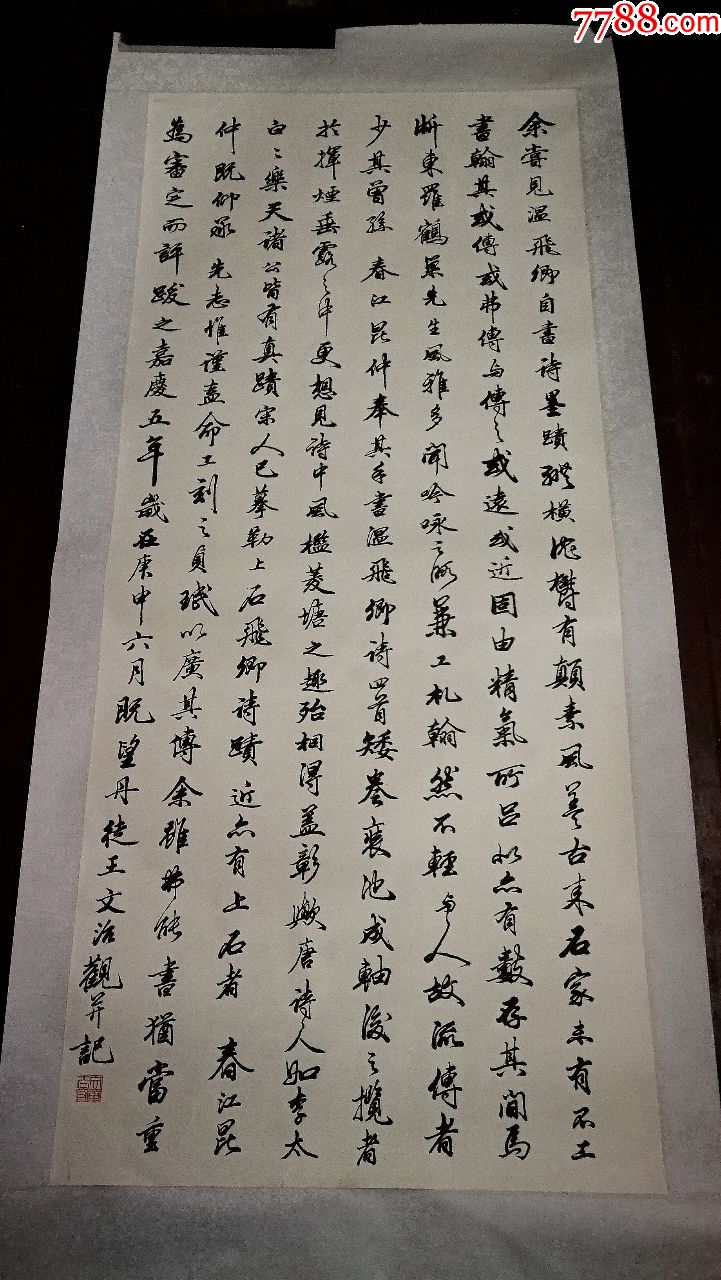 7788.com
余嘗見温飛卿自書詩墨蹟縱横沈鬱有顛素風葢古来名家未有不工
書翰其或傳或弗傳与傳之或遠或近固由精氣所呂然亦有數存其間焉
浙東羅鶴先生風雅多聞吟咏之所兼工札翰然不輕与人故流傳者
少其曾孫春江昆仲奉其手書温飛卿詩四首矮卷裒池成軸後之攬者
於揮煙垂露之中更想見詩中風檻菱塘之趣殆相得益彰歟唐詩人如李太
白〻樂天諸公皆有真蹟宋人已摹勒上石飛卿詩蹟近亦有上石者春江昆
仲既仰承先志惟謹亟命工刻之貞珉以廣其傳余雖弗能書猶當重
為審定而評跋之嘉慶五年歲在庚申六月既望丹徒王文治觀并記